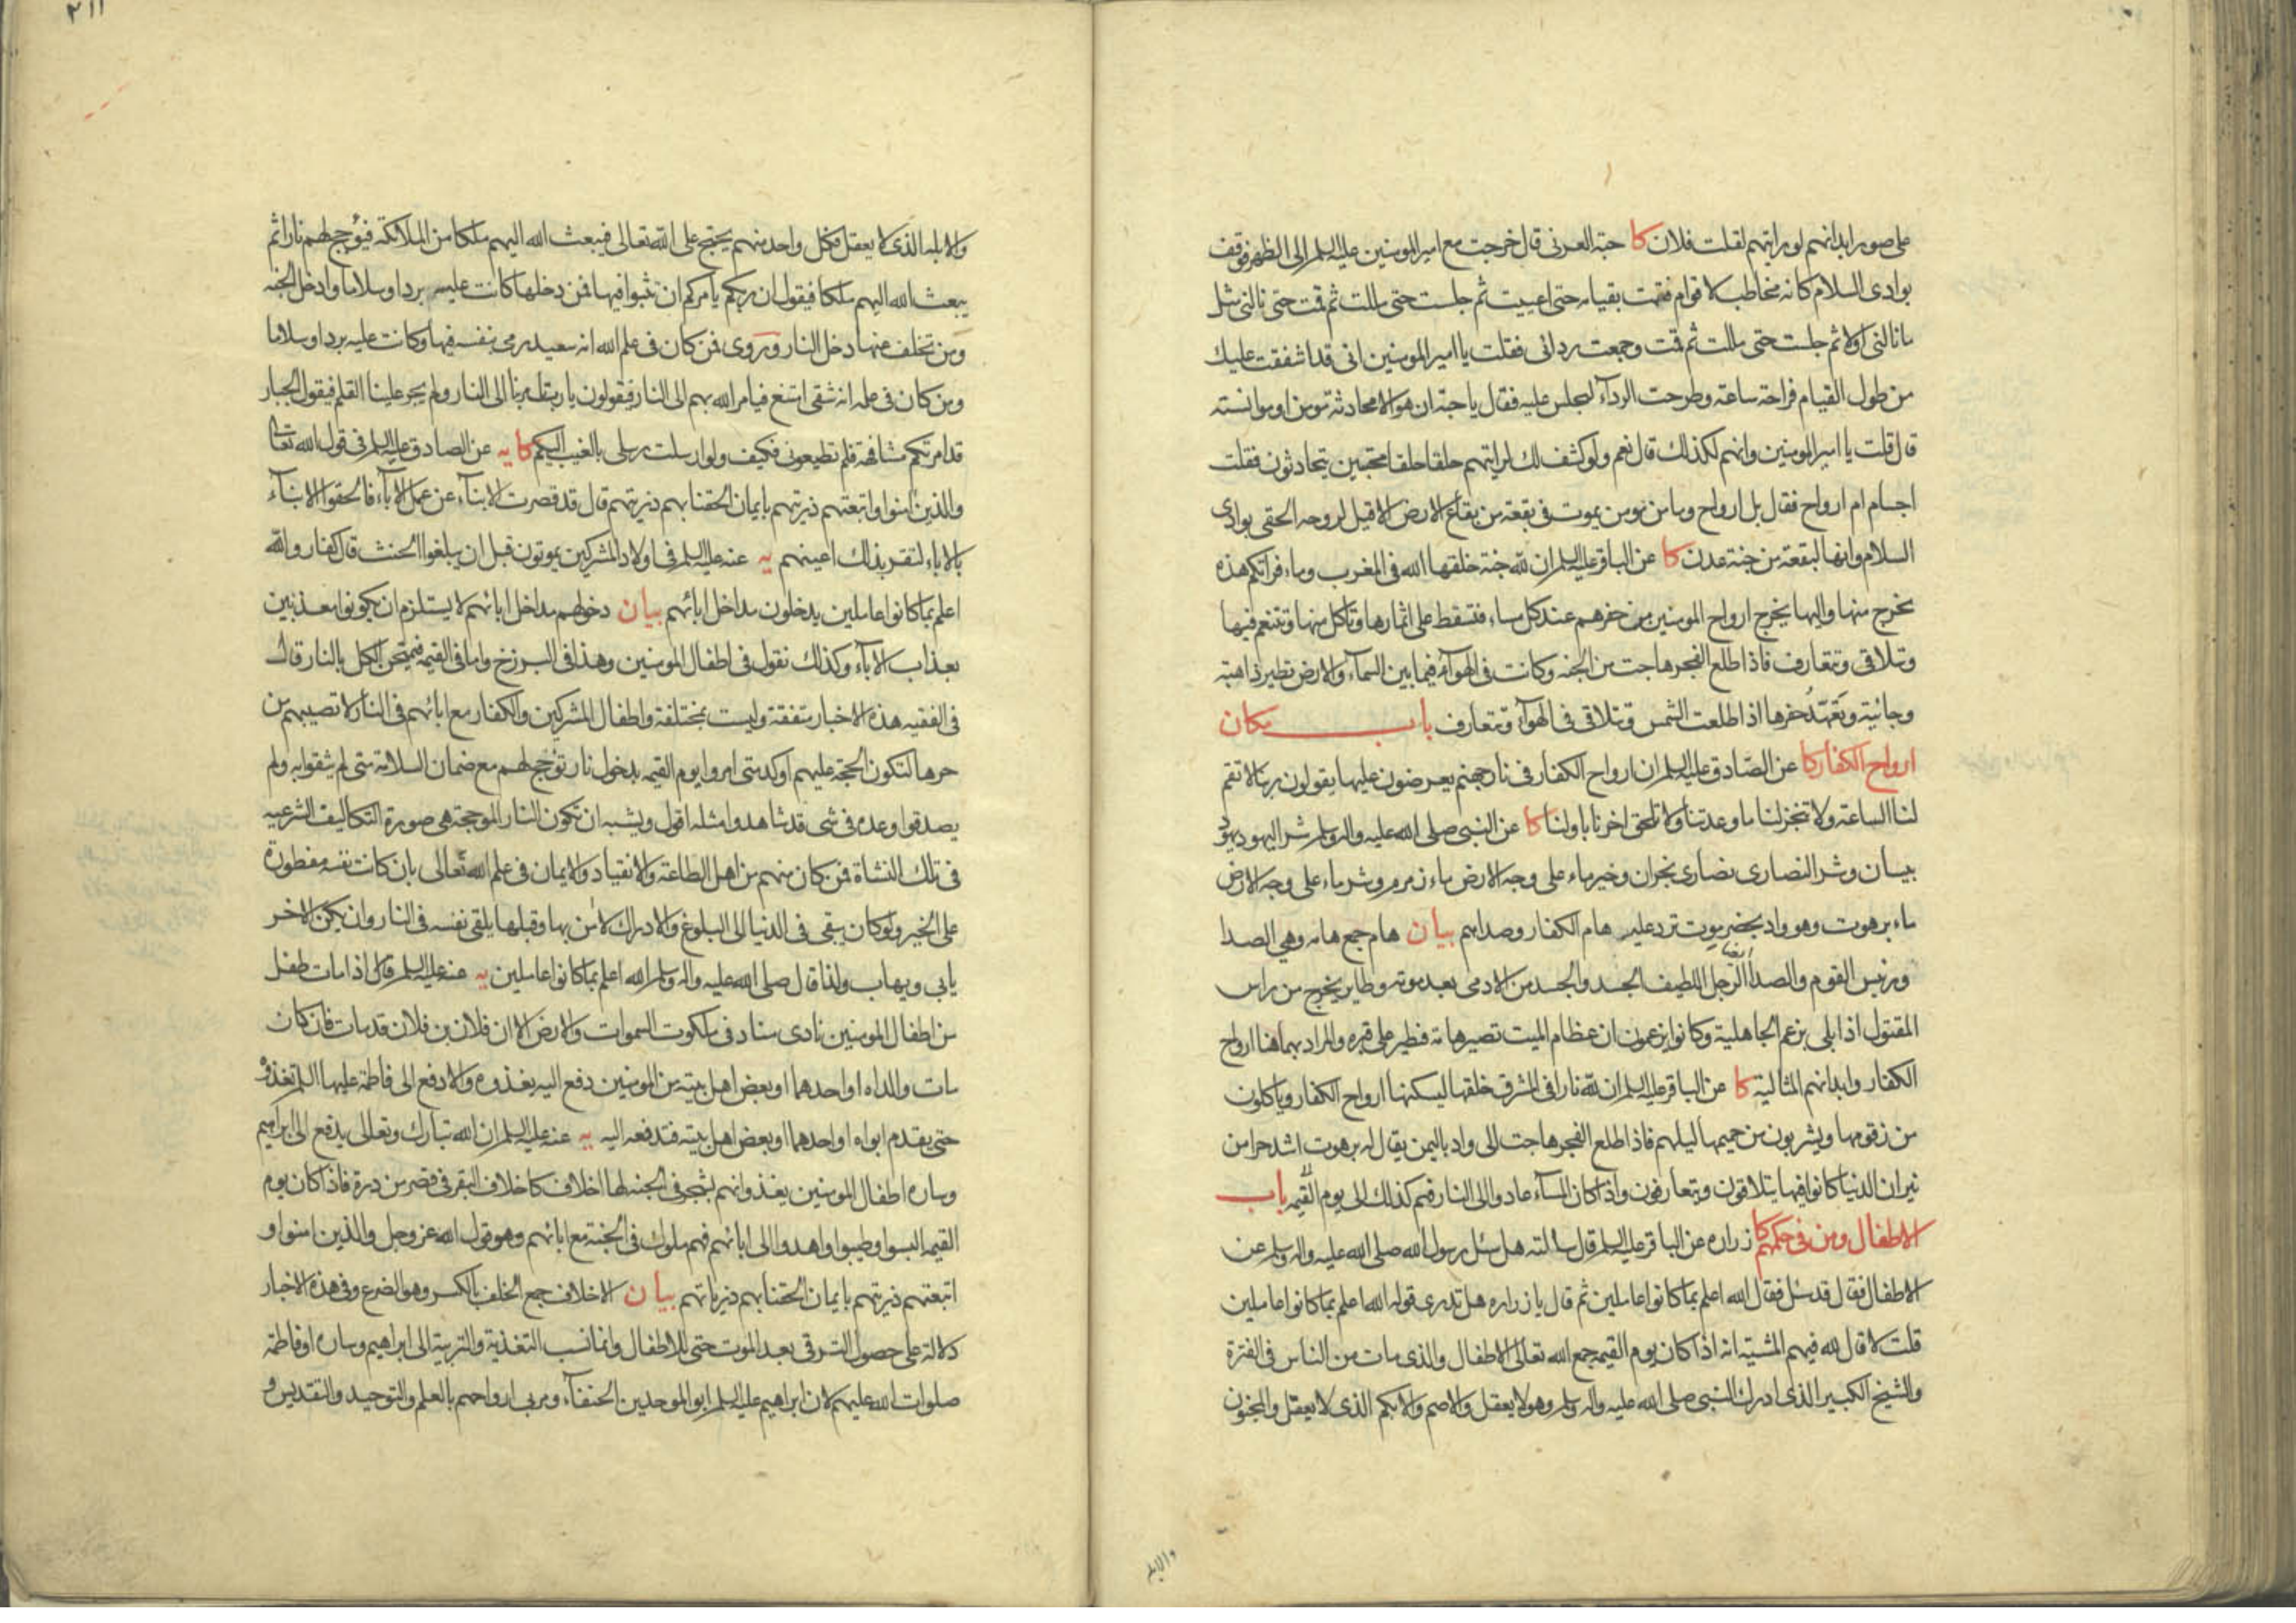 على صور ابدانهم لو رايتهم لقلت فلان كا حبة العرنى قال خرجت مع امير المومنين عليه السلم الى الظهر فوقف
بوادى السلام كانه مخاطب لاقوام فقمت بقيامه حتى اعييت ثم جلست حتى مللت ثم قمت حتى نالنى مثل
ما نالنى اولا ثم جلست حتى مللت ثم قمت وجمعت ردائى فقلت يا امير المومنين انى قد اشفقت عليك
من طول القيام فراحة ساعة وطرحت الردآء ليجلس عليه فقال يا حبة ان هو الا محادثة مومن او موانسته
قال قلت يا امير المومنين وانهم لكذلك قال نعم ولو كشف لك لرايتهم حلقا حلقا محتبين يتحادثون فقلت
اجسام ام ارواح فقال بل ارواح وما من مومن يموت فى بقعة من بقاع الارض الا قيل لروحه الحقى بوادى
السلام وانها لبقعة من جنة عدن كا عن الباقر عليه السلم ان لله جنة خلقها الله فى المغرب وماء فراتكم هذه
يخرج منها واليها يخرج ارواح المومنين من حفرهم عند كل مساء فتسقط على اثمارها وتاكل منها وتتنعم فيها
وتتلاقى وتتعارف فاذا طلع الفجر هاجت من الجنة وكانت فى الهوآء فيما بين السمآء والارض تطير ذاهبة
وجائية وتعهد حفرها اذا طلعت الشمس وتتلاقى فى الهوآء وتتعارف باب مكان
ارواح الكفار كا عن الصادق عليه السلم ان ارواح الكفار فى نار جهنم يعرضون عليها يقولون ربنا لا تقم
لنا الساعة ولا تنجز لنا ما وعدتنا ولا تلحق اخرنا باولنا كا عن النبى صلى الله عليه واله وسلم شر اليهود يهود
بيسان وشر النصارى نصارى نجران وخير ماء على وجه الارض ماء زمزم وشر ماء على وجه الارض
ماء برهوت وهو واد بحضرموت ترد عليه هام الكفار وصداهم بيان هام جمع هامه وهى الصدا
ورئيس القوم والصدا ايضا الرجل اللطيف الجسد والجسد من الادمى بعد موته وطاير يخرج من راس
المقتول اذا بلى بزعم الجاهلية وكانوا يزعمون ان عظام الميت تصير هامة فتطير على قبره والمراد بهما هنا ارواح
الكفار وابدانهم المثالية كا عن الباقر عليه السلم ان لله نارا فى المشرق خلقها ليسكنها ارواح الكفار وياكلون
من زقومها ويشربون من حميمها ليلهم فاذا طلع الفجر هاجت الى واد باليمن يقال له برهوت اشد حرا من
نيران الدنيا كانوا فيها يتلاقون ويتعارفون واذا كان المسآء عادوا الى النار فهم كذلك الى يوم القيمه باب
الاطفال ومن فى حكمهم كا زراره عن الباقر عليه السلم قال سالته هل سئل رسول الله صلى الله عليه واله وسلم عن
الاطفال فقال قد سئل فقال الله اعلم بما كانوا عاملين ثم قال يا زراره هل تدرى قوله الله اعلم بما كانوا عاملين
قلت لا قال لله فيهم المشية انه اذا كان يوم القيمه جمع الله تعالى الاطفال والذى مات من الناس فى الفترة
والشيخ الكبير الذى ادرك النبى صلى الله عليه واله وسلم وهو لا يعقل والاصم والابكم الذى لا يعقل والمجنون
والابله
٢١١
والابله الذى لا يعقل فكل واحد منهم يحتج على الله تعالى فيبعث الله اليهم ملكا من الملائكة فيؤجج لهم نارا ثم
يبعث الله اليهم ملكا فيقول ان ربكم يامركم ان تثبوا فيها فمن دخلها كانت عليه بردا وسلاما وادخل الجنه
ومن تخلف عنها دخل النار وروى فمن كان فى علم الله انه سعيد رمى بنفسه فيها وكانت عليه بردا وسلاما
ومن كان فى علمه انه شقى امتنع فيامر الله بهم الى النار فيقولون يا ربنا تامر بنا الى النار ولم يجر علينا القلم فيقول الجبار
قد امرتكم مشافهة فلم تطيعون فكيف ولو ارسلت رسلى بالغيب اليكم كا يه عن الصادق عليه السلم فى قول الله تعالى
والذين امنوا واتبعتهم ذريتهم بايمان الحقنا بهم ذريتهم قال قد قصرت الابنآء عن عمل الابآء فالحقوا الابنآء
بالاباء لتقر بذلك اعينهم يه عنه عليه السلم فى اولاد المشركين يموتون قبل ان يبلغوا الحنث قال كفار والله
اعلم بما كانوا عاملين يدخلون مداخل ابائهم بيان دخولهم مداخل ابائهم لا يستلزم ان يكونوا معذبين
بعذاب الابآء وكذلك نقول فى اطفال المومنين وهذا فى البرزخ واما فى القيمه فيمتحن الكل بالنار قال
فى الفقيه هذه الاخبار متفقة وليست بمختلفة واطفال المشركين والكفار مع ابائهم فى النار لا تصيبهم من
حرها لتكون الحجة عليهم اوكد متى امروا يوم القيمه بدخول نار تؤجج لهم مع ضمان السلامة متى لم يثقوا به ولم
يصدقوا وعده فى شى قد شاهدوا مثله اقول ويشبه ان تكون النار الموججة هى صورة التكاليف الشرعيه
فى تلك النشاة فمن كان منهم من اهل الطاعة والانقياد والايمان فى علم الله تعالى بان كانت نفسه مفطورة
على الخير ولو كان يبقى فى الدنيا الى البلوغ والادراك لامن بها وقبلها يلقى نفسه فى النار وان يكن الاخر
يابى ويهاب ولذا قال صلى الله عليه واله وسلم الله اعلم بما كانوا عاملين يه عنه عليه السلم قال اذا مات طفل
من اطفال المومنين نادى مناد فى ملكوت السموات والارض الا ان فلان بن فلان قد مات فان كان
مات والداه او احدهما او بعض اهل بيته من المومنين دفع اليه يغذوه والا دفع الى فاطمة عليها السلم تغذوه
حتى يقدم ابواه او احدهما او بعض اهل بيته فتدفعه اليه يه عنه عليه السلم ان الله تبارك وتعالى يدفع الى ابراهيم
وساره اطفال المومنين يغذوانهم بشجر فى الجنة لها اخلاف كاخلاف البقر فى قصر من درة فاذا كان يوم
القيمه البسوا وطيبوا واهدوا الى ابائهم فهم ملوك فى الجنة مع ابائهم وهو قول الله عز وجل والذين امنوا و
اتبعتهم ذريتهم بايمان الحقنا بهم ذرياتهم بيان الاخلاف جمع الخلف بالكسر وهو الضرع وفى هذه الاخبار
دلالة على حصول الترقى بعد الموت حتى للاطفال وانما نسب التغذية والتربية الى ابراهيم وساره او فاطمة
صلوات الله عليهم لان ابراهيم عليه السلم ابو الموحدين الحنفآء ومربى ارواحهم بالعلم والتوحيد والتقديس و